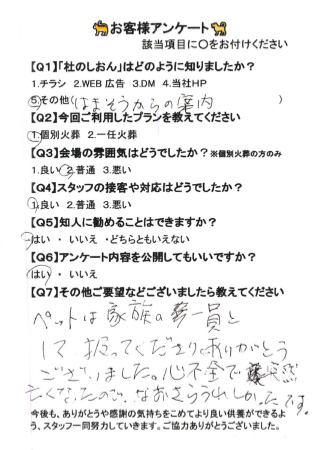 お客様アンケート
該当項目に〇をお付けください
【Q1】「杜のしおん」はどのように知りましたか?
1.チラシ 2.WEB広告 3.DM 4.当社HP
5.その他(はまそうからの案内)
【Q2】今回ご利用したプランを教えてください
1.個別火葬 2.一任火葬
【Q3】会場の雰囲気はどうでしたか?※個別火葬の方のみ
1.良い 2.普通 3.悪い
【Q4】スタッフの接客や対応はどうでしたか?
1.良い 2.普通 3.悪い
【Q5】知人に勧めることはできますか?
はい ・ いいえ ・どちらともいえない
【Q6】アンケート内容を公開してもいいですか?
はい ・ いいえ
【Q7】その他ご要望などございましたら教えてください
ペットは家族の一員と
して扱ってくださりありがとう
ございました。心不全で突然
亡くなったので、なおさらうれしかったです。
今後も、ありがとうや感謝の気持ちをこめてより良い供養ができるよ
う、スタッフ一同努力していきます。ご協力ありがとうございました。